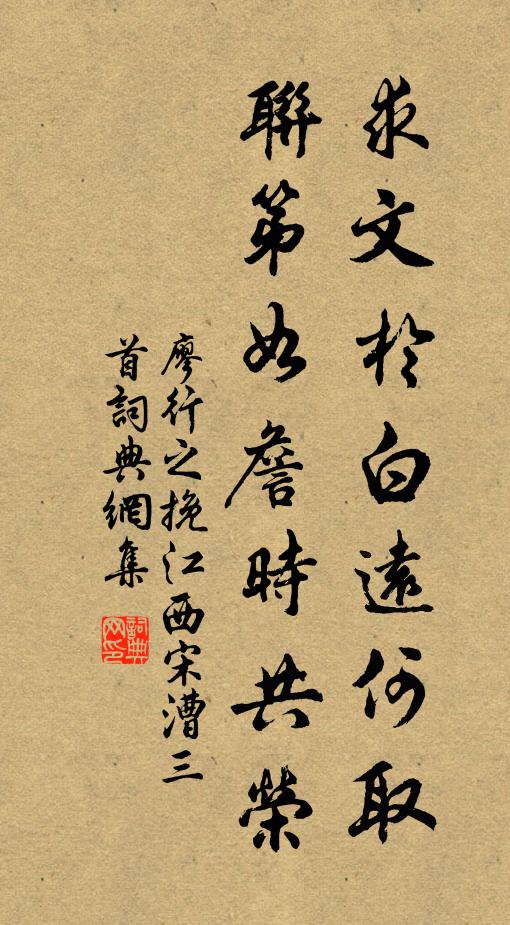 求文於白遠何取
聯第如詹時共榮
廖行之挽江西宋漕三
首詞典網集
詞典网印